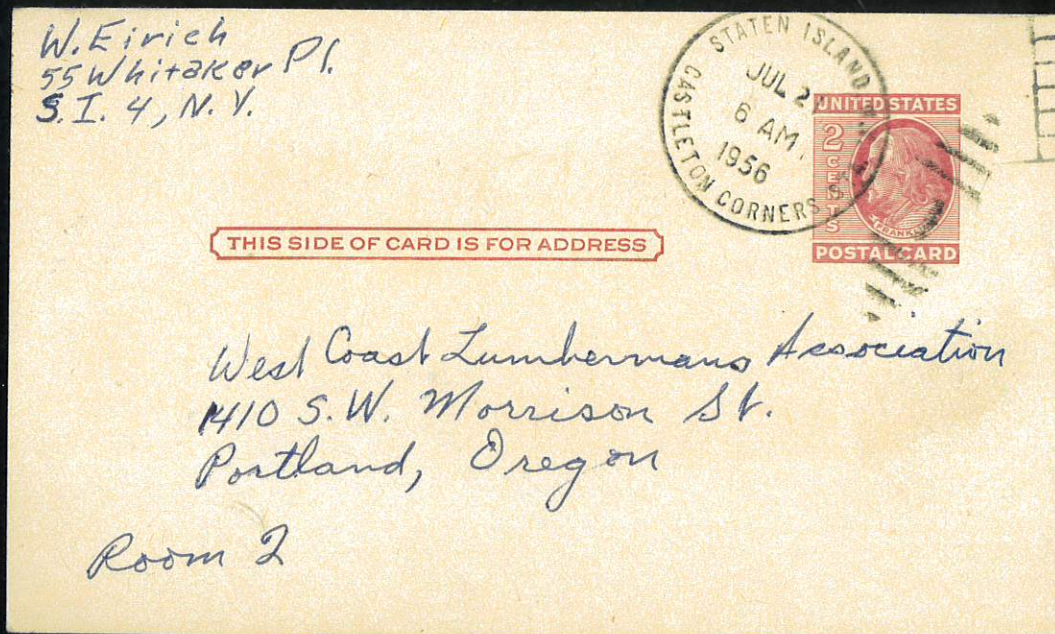 W. Eirich
55 Whitaker Pl.
S. I. 4, N. Y.
STATEN ISLAND
JUL
6 AM
1956
CASTLETON CORNERS
UNITED STATES
2
CENTS
POSTAL CARD
THIS SIDE OF CARD IS FOR ADDRESS
West Coast Lumbermans Association
1410 S.W. Morrison St.
Portland, Oregon
Room 2